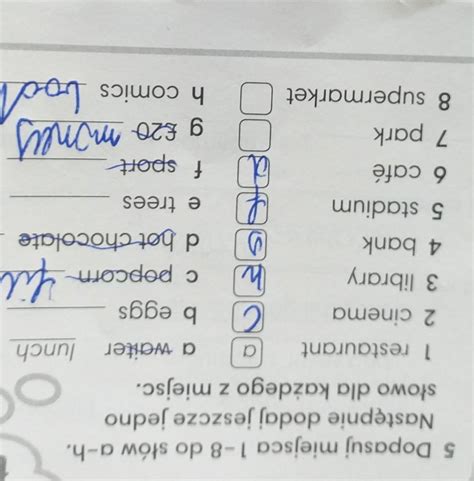 5 Dopasuj miejsca 1–8 do słów a–h.
Następnie dodaj jeszcze jedno
słowo dla każdego z miejsc.
1 restaurant a a waiter lunch
2 cinema c b eggs
3 library h c popcorn fil
4 bank g d hot chocolate
5 stadium f e trees
6 café d f sport
7 park g £20 money
8 supermarket h comics boo